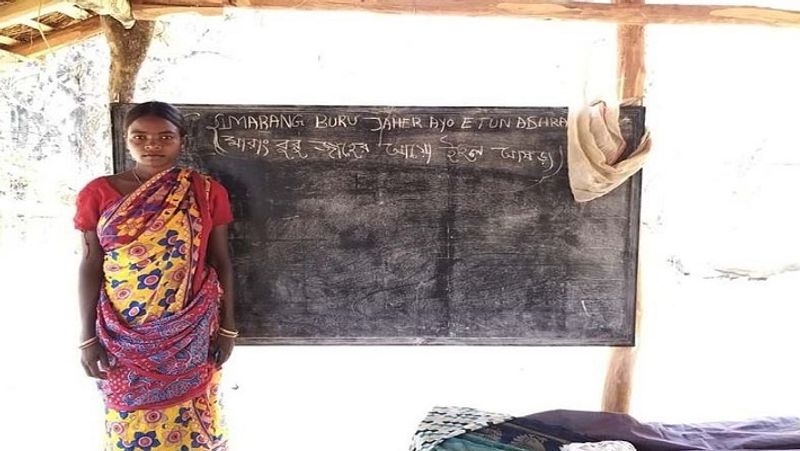 MARANG BURU JAHER AYO ETUN ASHRA
(মারাং বুরু জাহের আয়ো ইতুন আষড়া)